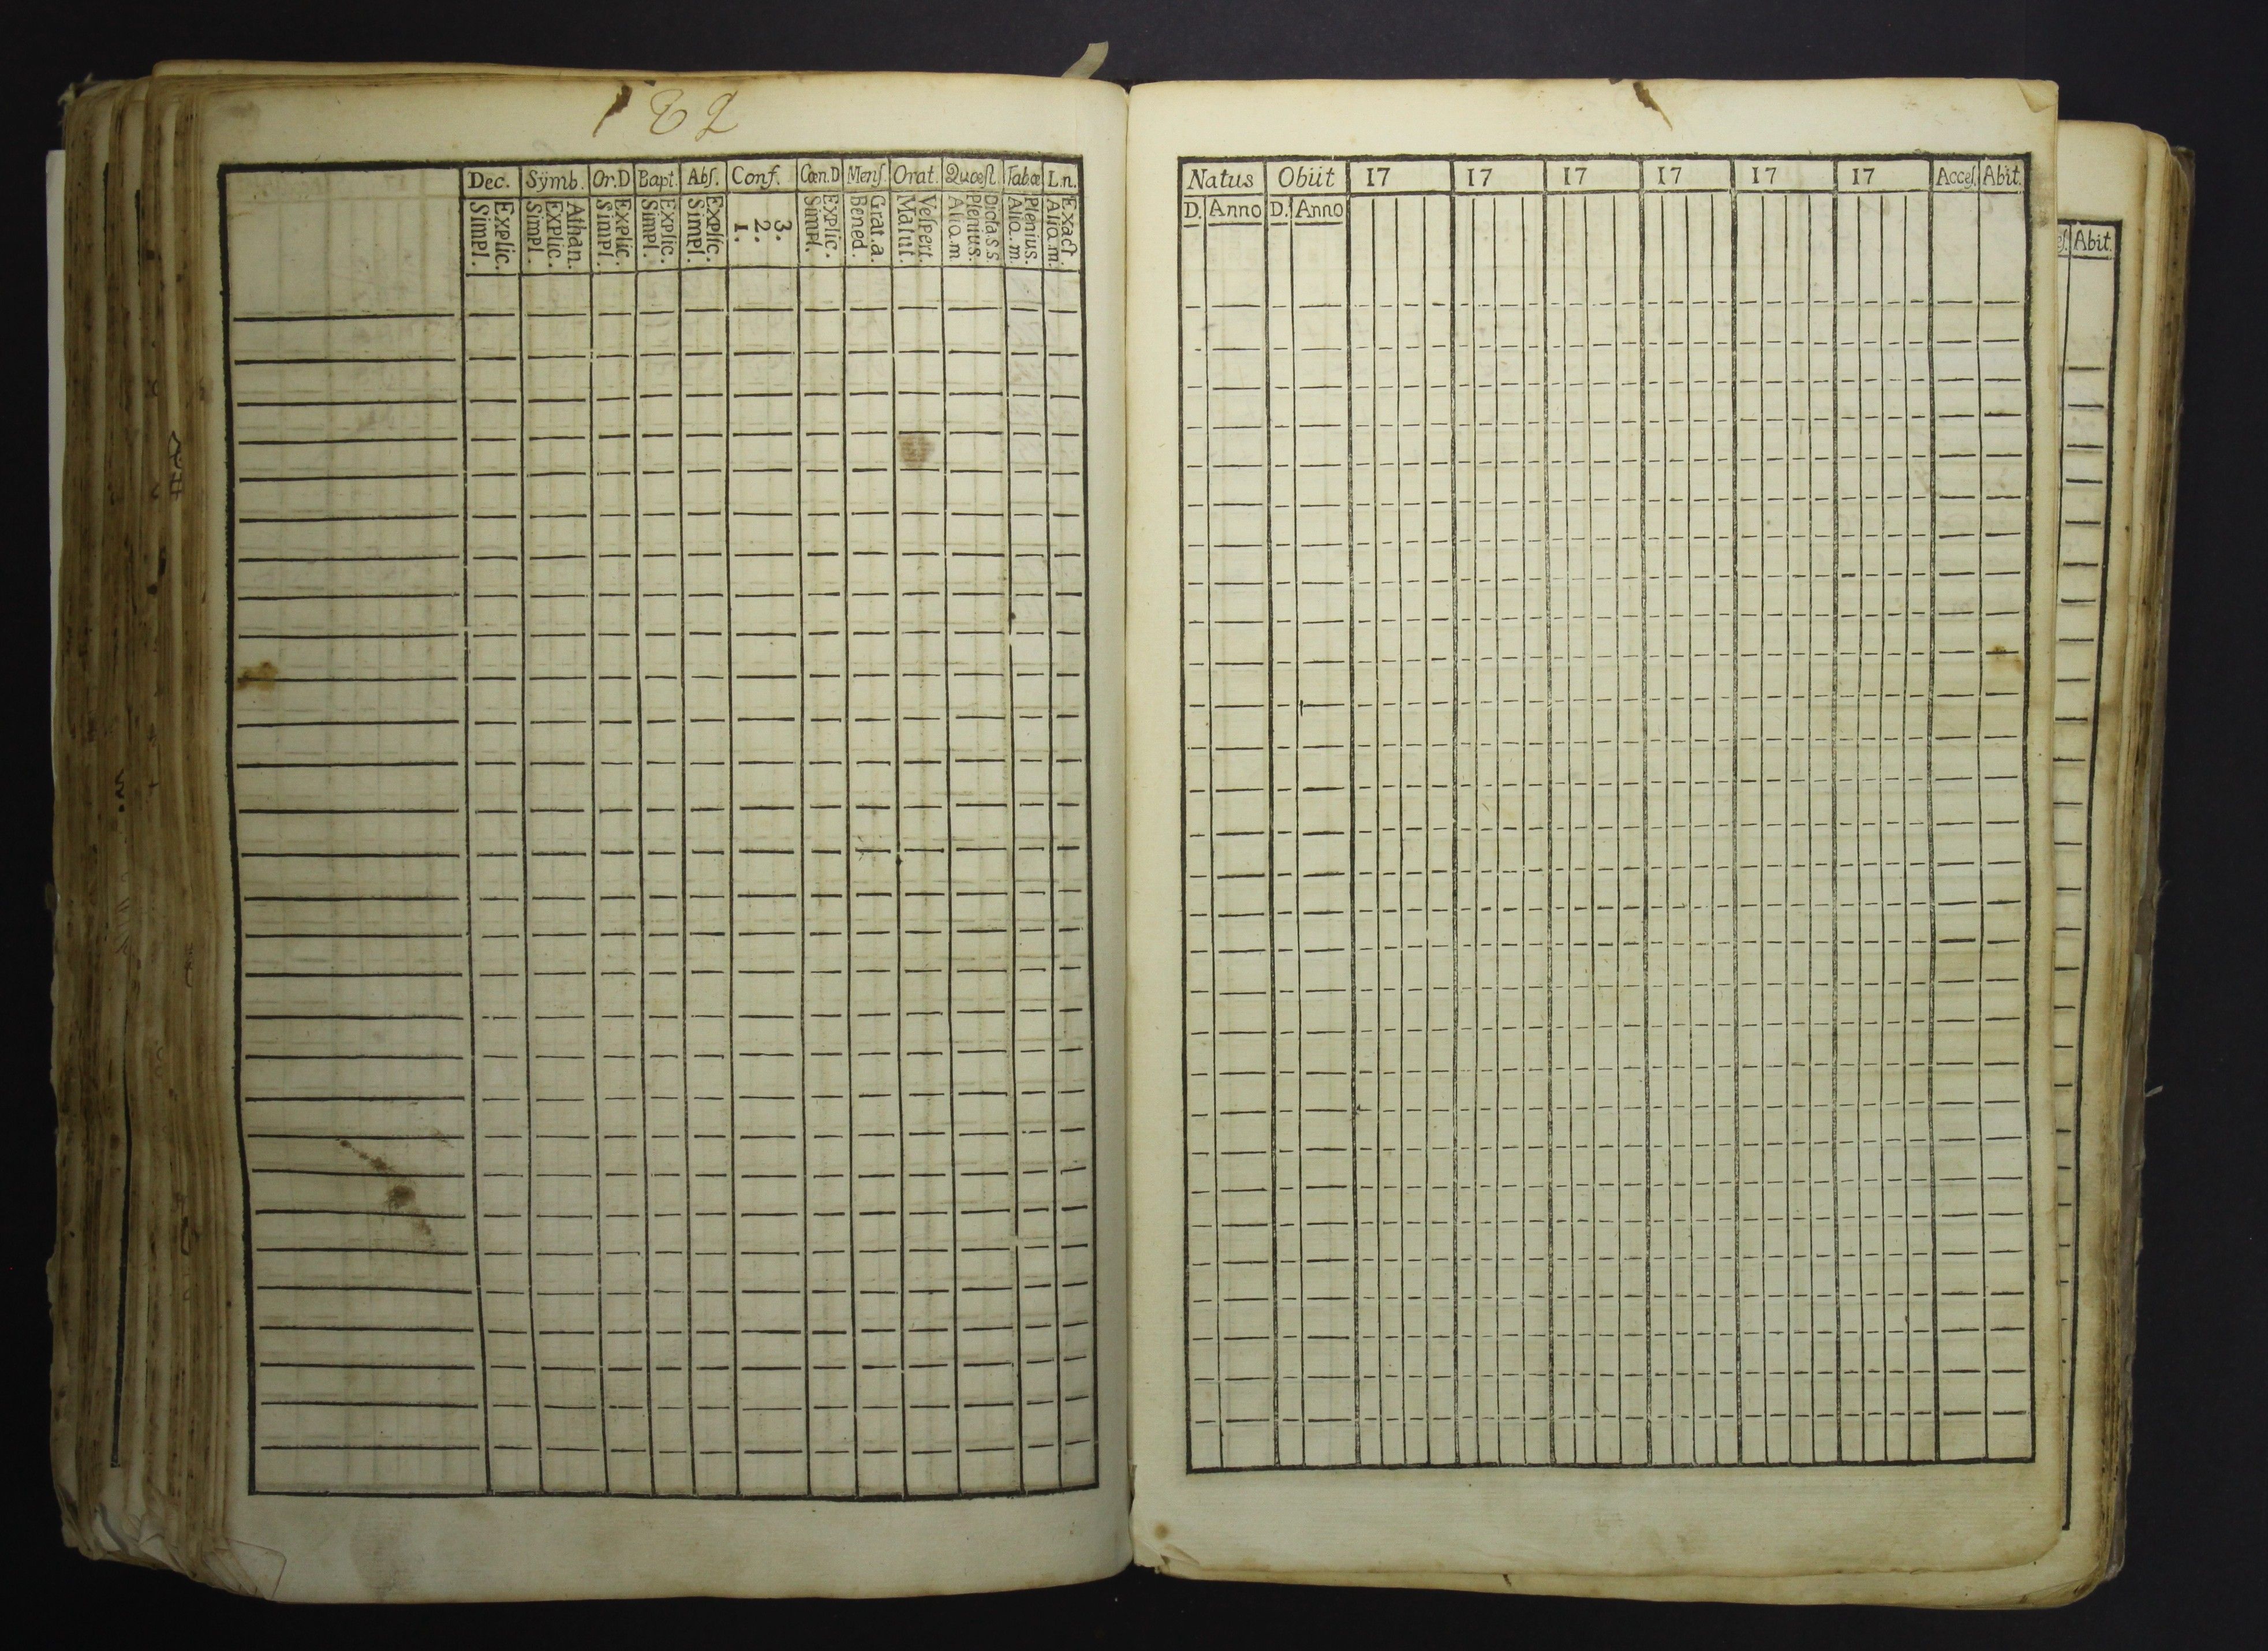 182
Dec. Symb. Or.D Bapt. Abſ. Conf. Cœn.D Menſ. Orat. Quæſt. Tabæ L.n.
Explic. Simpl.
Athan. Explic. Simpl.
Explic. Simpl.
Explic. Simpl.
Explic. Simpl.
3. 2. 1.
Explic. Simpl.
Grat.a. Bened.
Veſpert. Matut.
Dicta.S.S. Plenius. Aliq.m
Plenius. Aliq.m.
Exact. Aliq.m.
Natus Obiit 17 17 17 17 17 17 Acceſ. Abit.
D. Anno D. Anno
Abit.